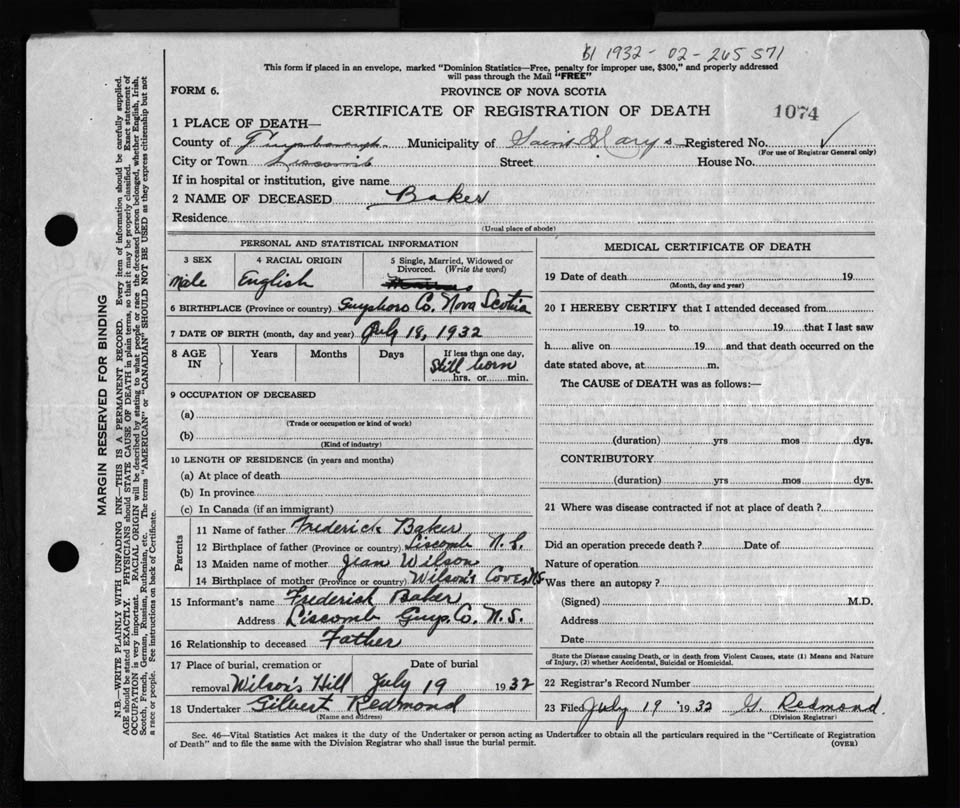 1932-02-265571
This form if placed in an envelope, marked "Dominion Statistics—Free, penalty for improper use, $300," and properly addressed
will pass through the Mail "FREE"
FORM 6. PROVINCE OF NOVA SCOTIA
CERTIFICATE OF REGISTRATION OF DEATH 1074
1 PLACE OF DEATH—
County of Guysborough Municipality of Saint Mary's Registered No.
(For use of Registrar General only)
City or Town Liscomb Street House No.
If in hospital or institution, give name
2 NAME OF DECEASED Baker
Residence
(Usual place of abode)
PERSONAL AND STATISTICAL INFORMATION
3 SEX 4 RACIAL ORIGIN 5 Single, Married, Widowed or
Divorced. (Write the word)
Male English
6 BIRTHPLACE (Province or country) Guysboro Co. Nova Scotia
7 DATE OF BIRTH (month, day and year) July 18, 1932
8 AGE IN Years Months Days If less than one day,
Still born
hrs. or min.
9 OCCUPATION OF DECEASED
(a)
(Trade or occupation or kind of work)
(b)
(Kind of industry)
10 LENGTH OF RESIDENCE (in years and months)
(a) At place of death
(b) In province
(c) In Canada (if an immigrant)
Parents
11 Name of father Frederick Baker
12 Birthplace of father (Province or country) Liscomb N.S.
13 Maiden name of mother Jean Wilson
14 Birthplace of mother (Province or country) Wilson's Cove NS
15 Informant's name Frederick Baker
Address Liscomb Guys. Co. N.S.
16 Relationship to deceased Father
17 Place of burial, cremation or Date of burial
removal Wilson's Hill July 19 1932
18 Undertaker Gilbert Redmond
(Name and address)
MEDICAL CERTIFICATE OF DEATH
19 Date of death 19
(Month, day and year)
20 I HEREBY CERTIFY that I attended deceased from
19 to 19 that I last saw
h alive on 19 and that death occurred on the
date stated above, at m.
The CAUSE of DEATH was as follows:—
(duration) yrs mos dys.
CONTRIBUTORY
(duration) yrs mos dys.
21 Where was disease contracted if not at place of death?
Did an operation precede death? Date of
Nature of operation
Was there an autopsy?
(Signed) M.D.
Address
Date
State the Disease causing Death, or in death from Violent Causes, state (1) Means and Nature
of Injury, (2) whether Accidental, Suicidal or Homicidal.
22 Registrar's Record Number
23 Filed July 19 1932 G. Redmond
(Division Registrar)
Sec. 46—Vital Statistics Act makes it the duty of the Undertaker or person acting as Undertaker to obtain all the particulars required in the "Certificate of Registration
of Death" and to file the same with the Division Registrar who shall issue the burial permit. (OVER)
MARGIN RESERVED FOR BINDING
N.B.—WRITE PLAINLY WITH UNFADING INK—THIS IS A PERMANENT RECORD. Every item of information should be carefully supplied.
AGE should be stated EXACTLY. PHYSICIANS should STATE CAUSE OF DEATH in plain terms, so that it may be properly classified. Exact statement of
OCCUPATION is very important. RACIAL ORIGIN will be described by stating to what people or race the deceased person belonged, whether English, Irish,
Scotch, French, German, Russian, Ruthenian, etc. The terms "AMERICAN" or "CANADIAN" SHOULD NOT BE USED as they express citizenship but not
a race or people. See instructions on back of Certificate.